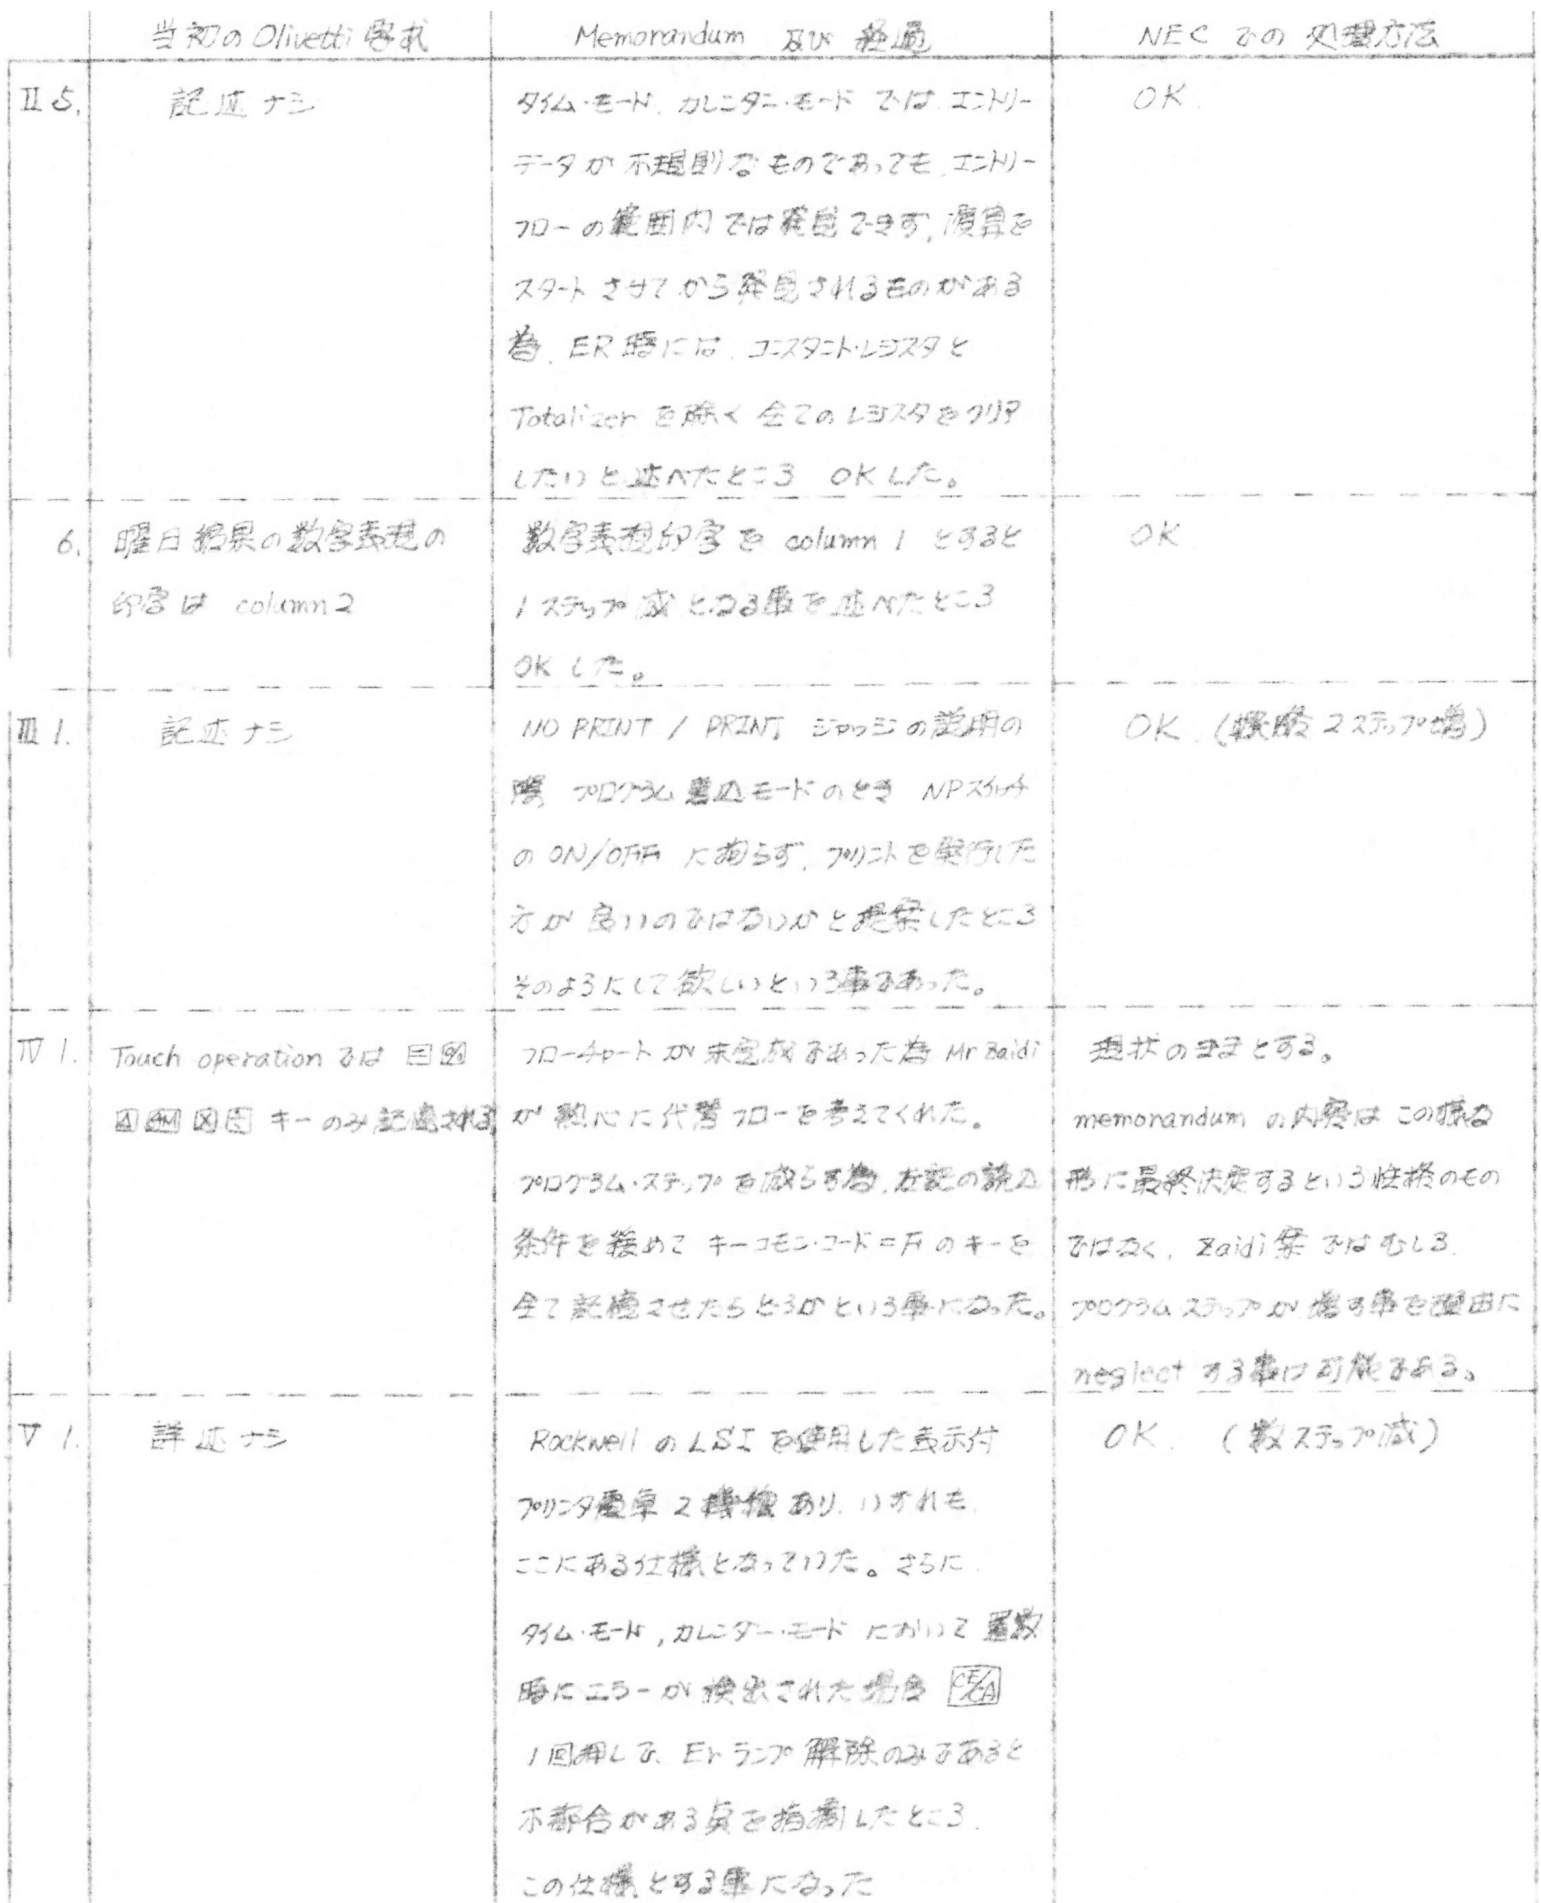 当初の Olivetti 要求
Memorandum 及び 経過
NEC での 処理方法
II 5.
記述ナシ
タイム・モード、カレンダー・モード では、エントリー
データが 不規則なものであっても、エントリー
フローの範囲内では発見できず、演算を
スタートさせてから発見されるものがある
為、ER時には、コンスタント・レジスタと
Totalizer を除く 全てのレジスタをクリア
したいと述べたところ OKした。
OK.
6.
曜日結果の数字表現の
印字は column 2
数字表現印字を column 1 とすると
1ステップ減となる事を述べたところ
OKした。
OK
III 1.
記述ナシ
NO PRINT / PRINT ジャッジの説明の
際 プログラム書込モードのとき NPスイッチ
の ON/OFF に拘らず、プリントを実行した
方が良いのではないかと提案したところ
そのようにして欲しいという事であった。
OK. (2ステップ増)
IV 1.
Touch operation では
キーのみ記憶される
フローチャートが未完成であった為 Mr Zaidi
が熱心に代替フローを考えてくれた。
プログラム・ステップを減らす為、左記の読込
条件を緩めて キーコモン・コード=F のキーを
全て記憶させたらどうかという事になった。
現状のままとする。
memorandum の内容はこの様な
形に最終決定するという性格のもの
ではなく、Zaidi案ではむしろ
プログラムステップが増す事を理由に
neglect する事は可能である。
V 1.
詳述ナシ
Rockwell の LSI を使用した表示付
プリンタ電卓 2機種あり、いずれも
ここにある仕様となっていた。さらに
タイム・モード,カレンダー・モードにおいて置数
時にエラーが検出された場合 CE/CA
1回押しで、Er ランプ解除のみであると
不都合がある点を指摘したところ
この仕様とする事になった
OK. (数ステップ減)